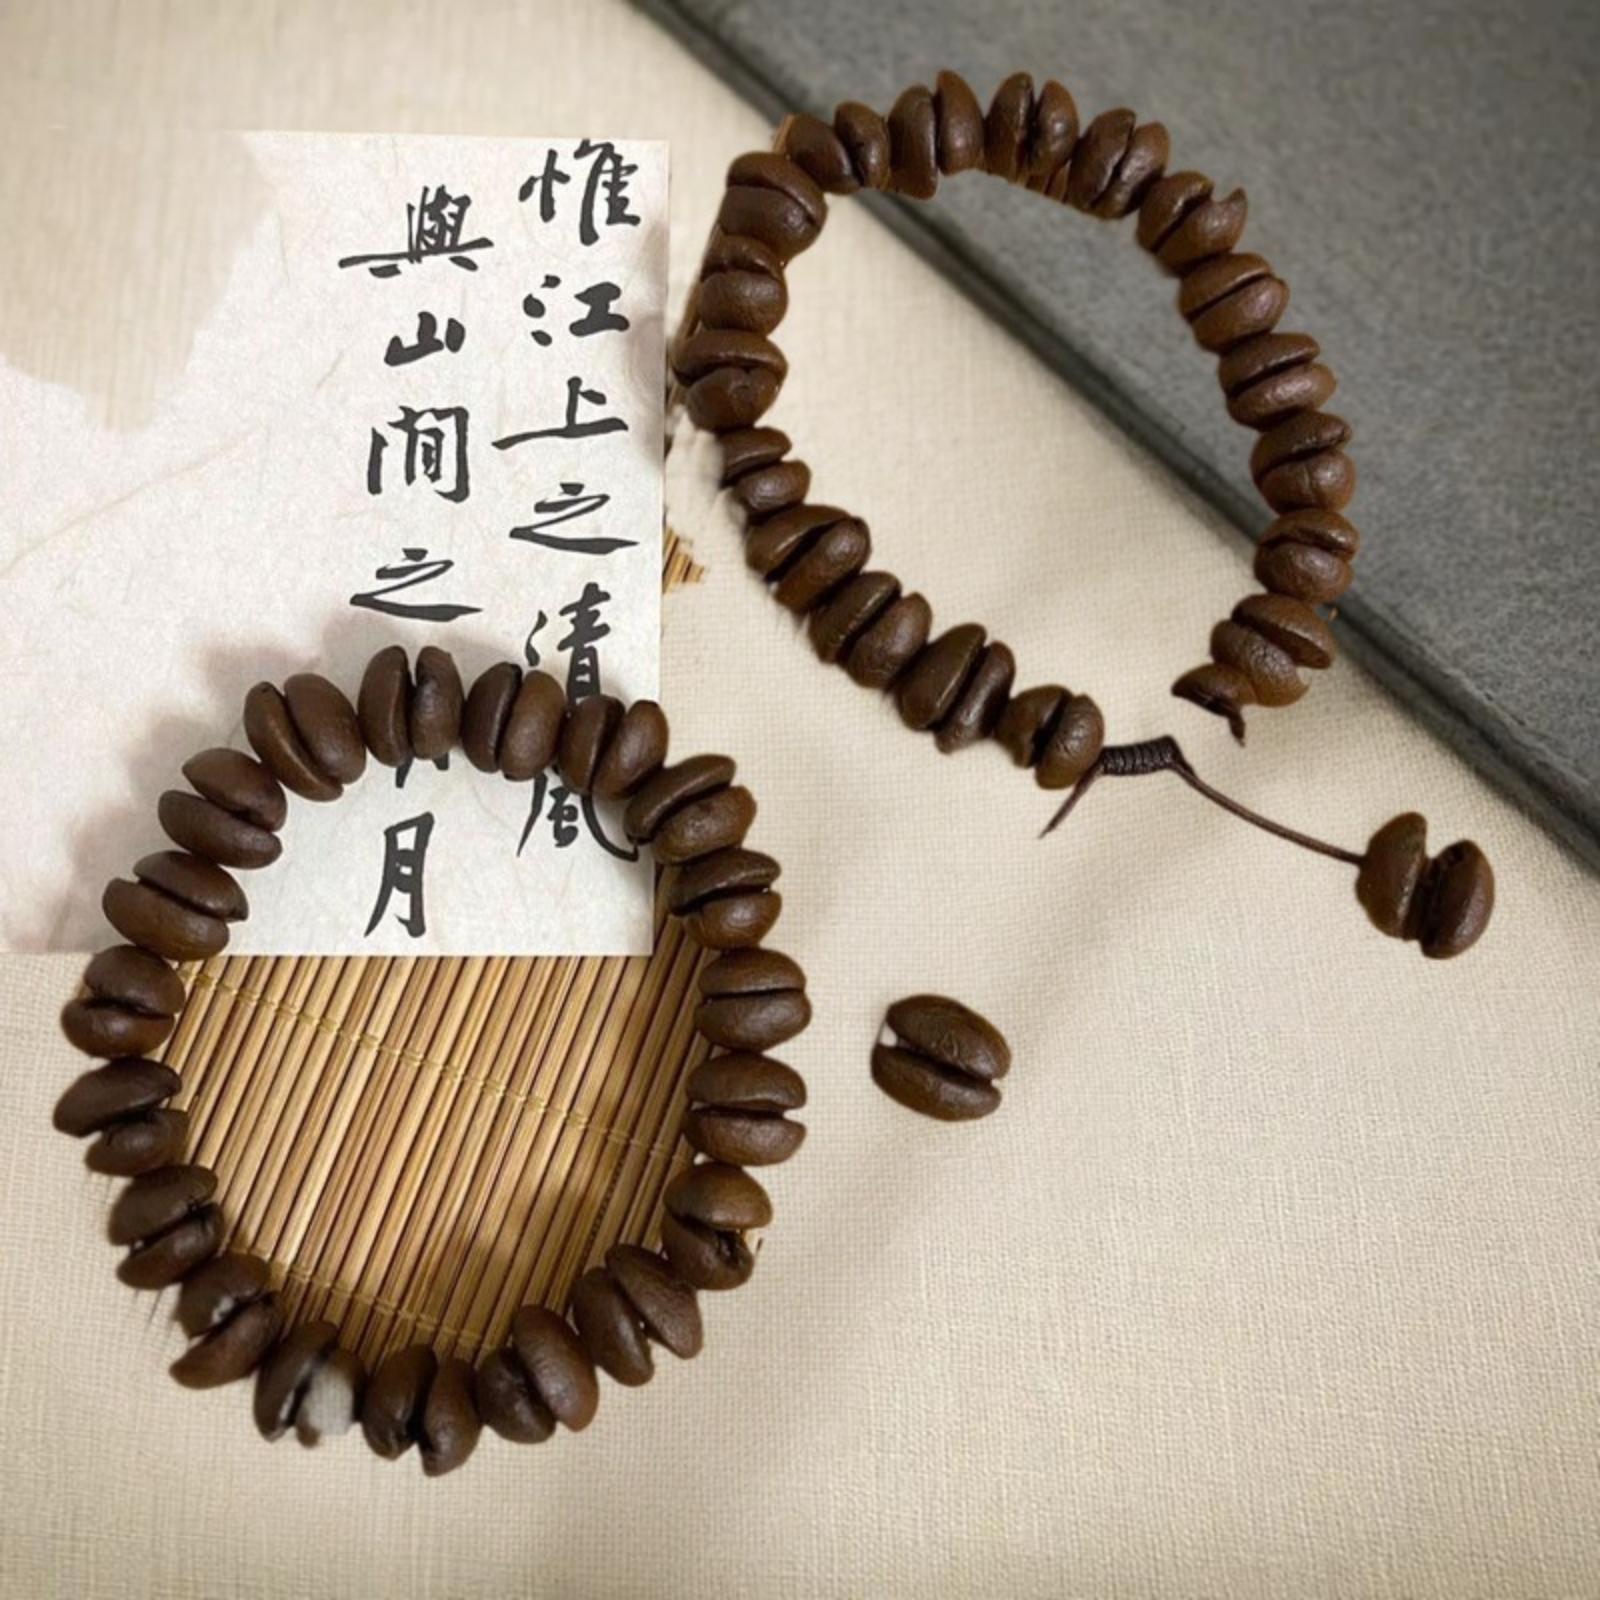 惟江上之清風
與山間之月